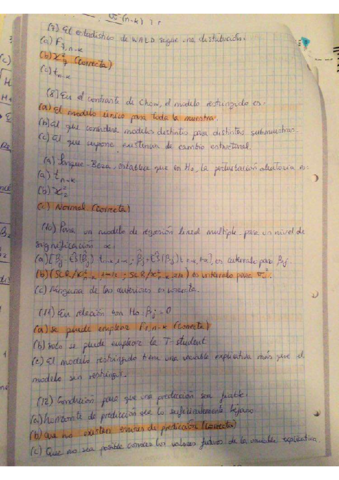 (7) El estadístico de WALD sigue una distribución:
(a) F q, n-k
(b) χ²q (correcta)
(c) t n-k
(8) En el contraste de Chow, el modelo restringido es:
(a) El modelo único para toda la muestra.
(b) El que considera modelos distintos para distintas submuestras.
(c) El que supone existencia de cambio estructural.
(9) Jarque-Bera, establece que la H₀, la perturbación aleatoria es:
(a) t n-k
(b) χ²₂
(c) Normal (correcta)
(10) Para un modelo de regresión lineal múltiple para un nivel de significación α:
(a) es intervalo para βj.
(b) es intervalo para
(c) Ninguna de las anteriores es correcta.
(11) En relación con H₀: βj = 0
(a) se puede emplear F 1, n-k (correcta)
(b) solo se puede emplear la T-student
(c) El modelo restringido tiene una variable explicativa más que el
modelo sin restringir.
(12) Condición para que una predicción sea
(a) horizonte de predicción sea lo suficientemente lejano
(b) que no existan errores de predicción (correcta)
(c) Que no sea posible conocer los valores futuros de la variable explicativa.